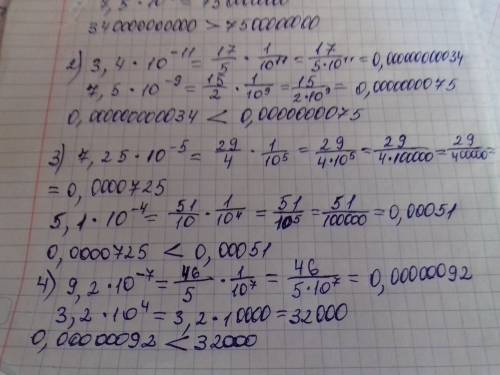 34000000000 > 75000000
2) 3,4 · 10⁻¹¹ = 17/5 · 1/10¹¹ = 17/5·10¹¹ = 0,000000000034
7,5 · 10⁻⁹ = 15/2 · 1/10⁹ = 15/2·10⁹ = 0,0000000075
0,000000000034 < 0,0000000075
3) 7,25 · 10⁻⁵ = 29/4 · 1/10⁵ = 29/4·10⁵ = 29/4·10000 = 29/40000 =
= 0,0000725
5,1 · 10⁻⁴ = 51/10 · 1/10⁴ = 51/10⁵ = 51/100000 = 0,00051
0,0000725 < 0,00051
4) 9,2 · 10⁻⁷ = 46/5 · 1/10⁷ = 46/5·10⁷ = 0,00000092
3,2 · 10⁴ = 3,2 · 10000 = 32000
0,00000092 < 32000